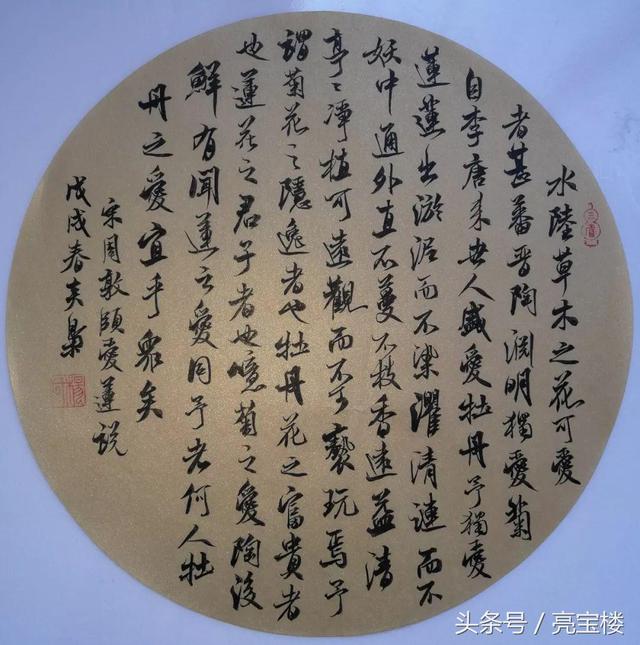 水陸草木之花可愛
者甚蕃晋陶渊明獨愛菊
自李唐来世人盛愛牡丹予獨愛
蓮蓮出淤泥而不染濯清漣而不
妖中通外直不蔓不枝香遠益清
亭〻净植可遠觀而不可褻玩焉予
謂菊花之隱逸者也牡丹花之富貴者
也蓮花之君子者也噫菊之愛陶後
鮮有聞蓮之愛同予者何人牡
丹之愛宜乎衆矣
宋周敦頤愛蓮説
戊戌春
头条号 / 亮宝楼